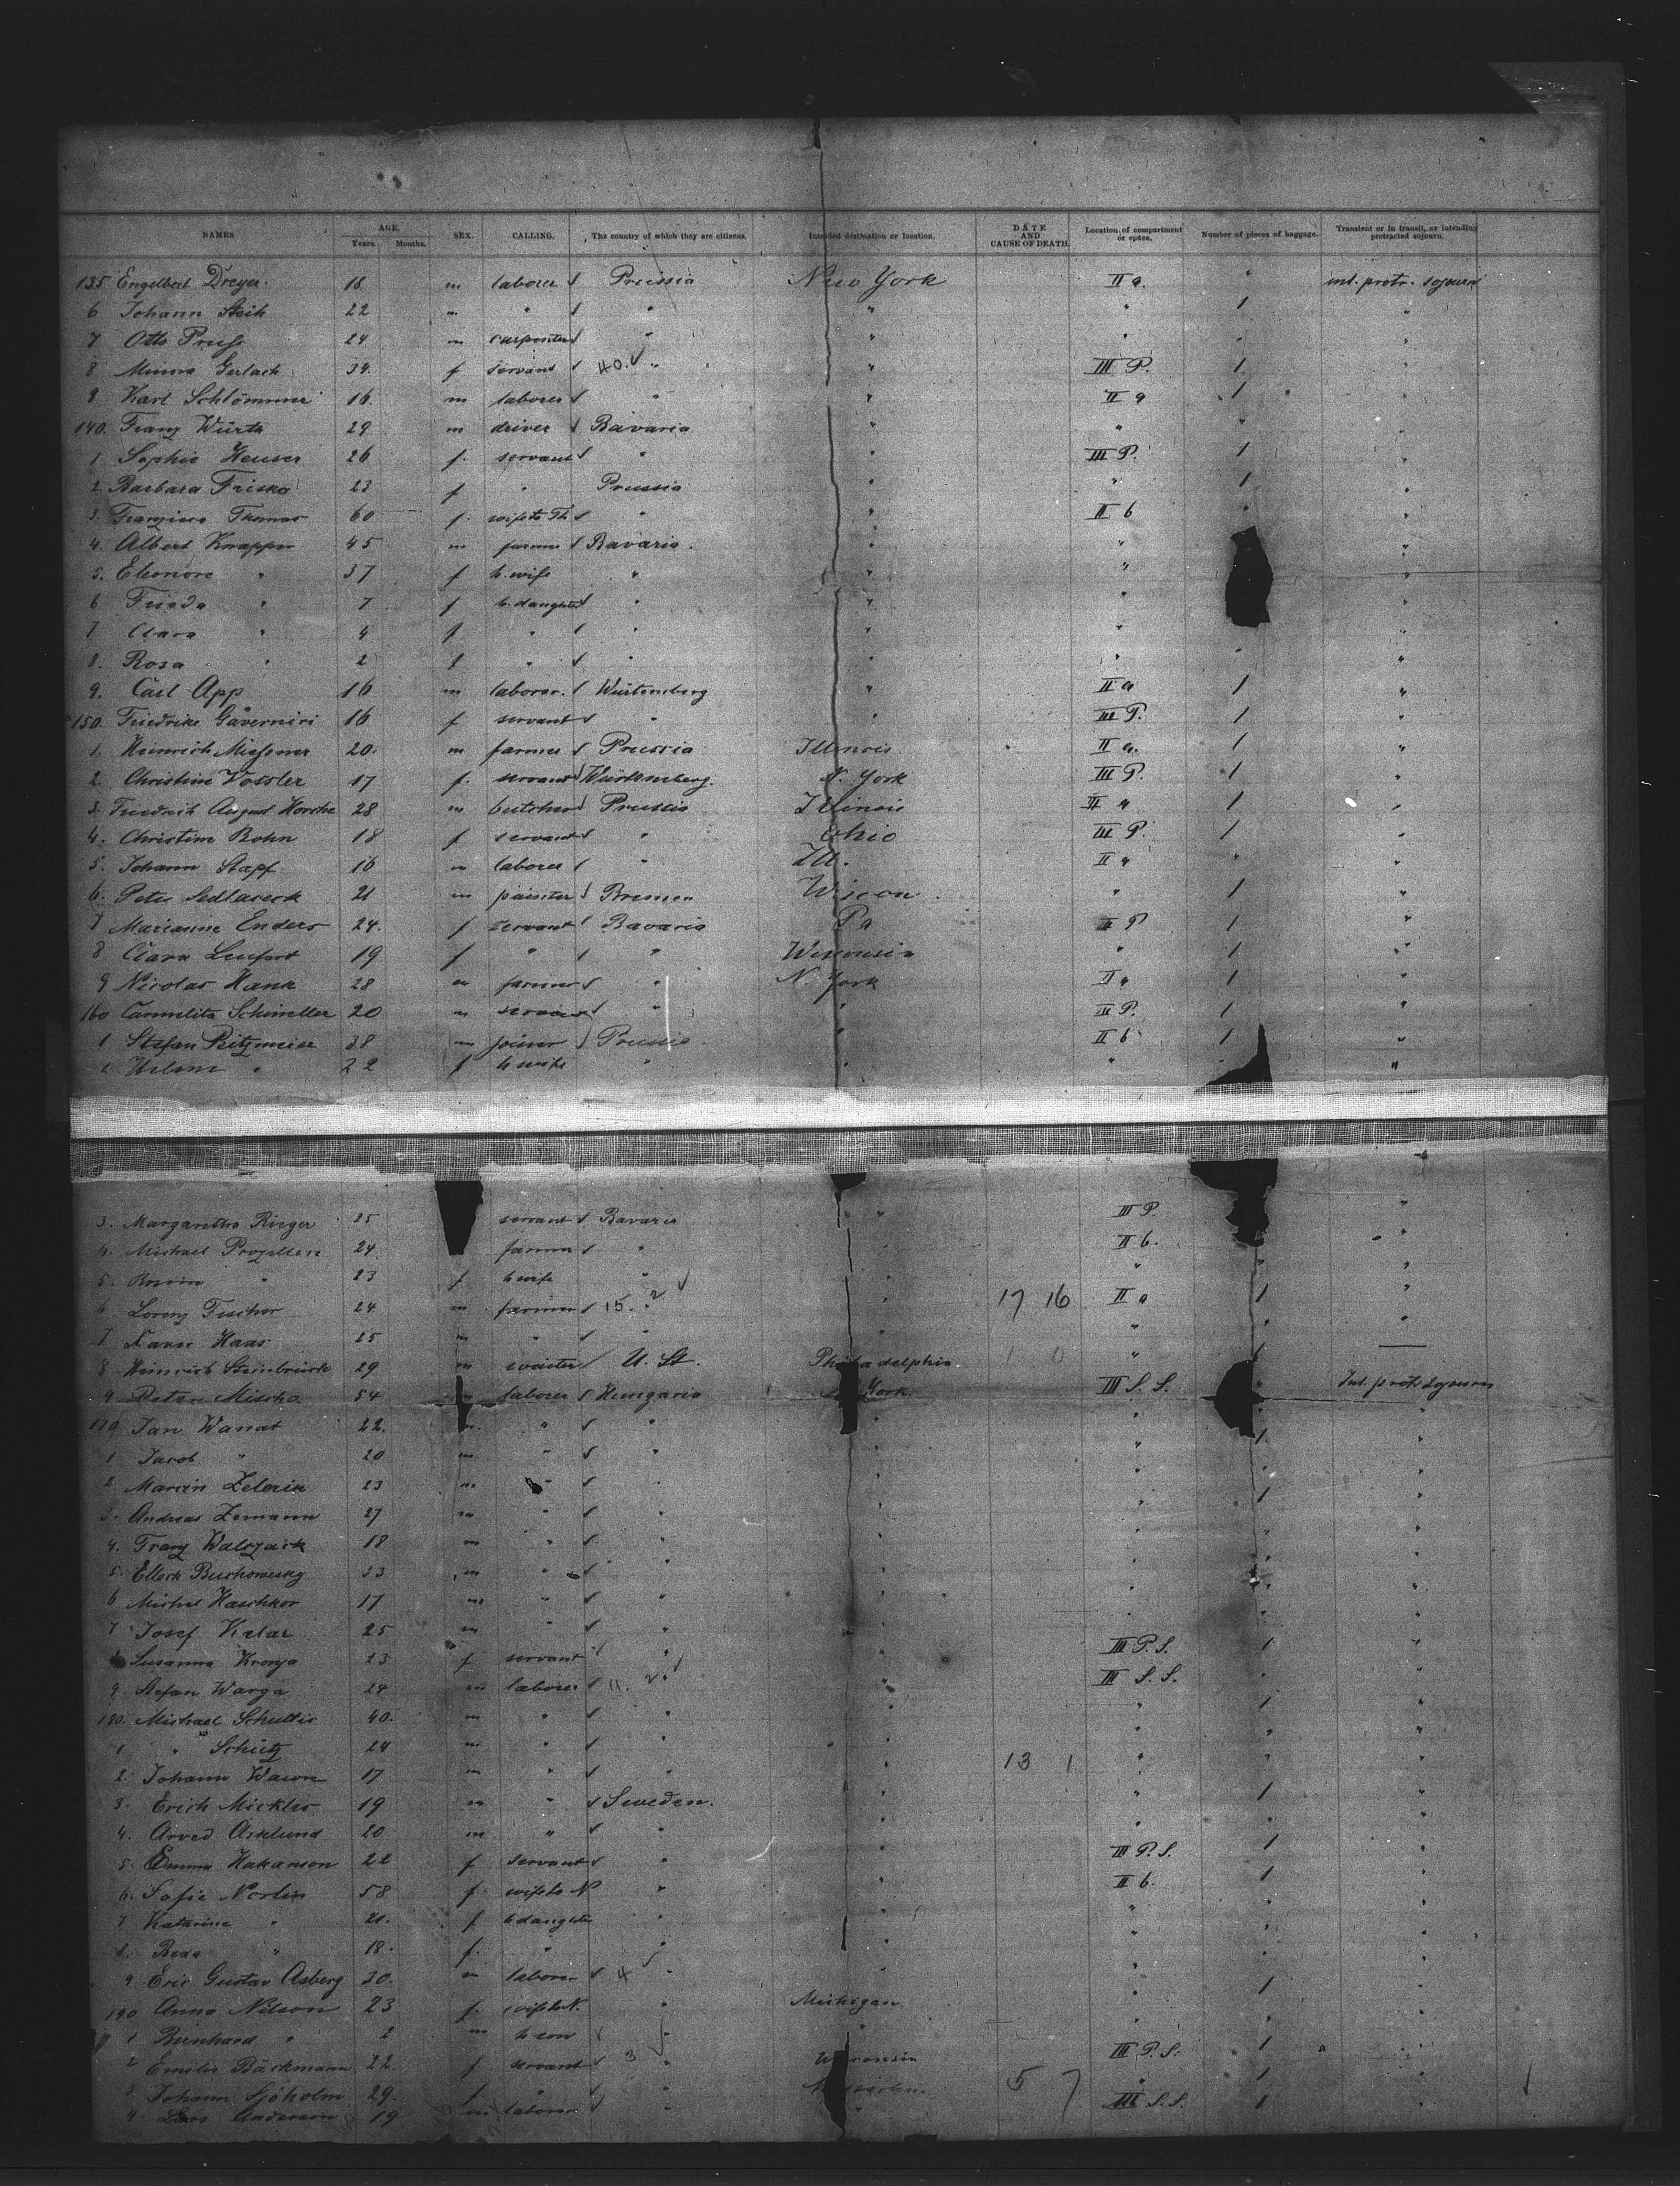 NAMES AGE. Years. Months. SEX. CALLING. The country of which they are citizens. Intended destination or location. DATE AND CAUSE OF DEATH. Location of compartment or space. Number of pieces of baggage. Transient or in transit, or intending protracted sojourn.
135 Engelbert Dreyer. 18 m laborer Prussia New York II a. " int. protr. sojourn
6 Johann 22 m " " " " 1 "
7 Otto Preuß 24 m carpenter " " " " "
8 Minna Gerlach 34. f servant 40. " " III P. 1 "
9 Karl Schlömmer 16. m laborer " " II a 1 "
140. Franz Würth 29 m driver Bavaria " " " "
1 Sophie Heuser 26 f. servant " " III P. 1 "
2 Barbara Friska 23 f " Prussia " " 1 "
3. Thomas 60 f. wife to Th. " " II b " "
4. Albert Knapper 45 m farmer Bavaria. " " "
5. Eleonore " 37 f h. wife " " " "
6 Frieda " 7 f h. daughter " " " "
7 Clara " 4 f. " " " " "
8. Rosa " 2 f " " " " " "
9. Carl App 16 m laborer. Würtemberg " II a 1 "
150. Friedrike 16 f servant " " III P. 1 "
1. Heinrich Mießmer 20. m farmer Prussia Illinois II a. 1 "
2. Christine Vossler 17 f. servant Würtemberg. N. York III P. 1 "
3. Friedrich August 28 m butcher Prussia Illinois II a 1 "
4. Christine Bohn 18 f servant " Ohio III P. 1 "
5. Johann Stapf 16 m laborer " Ill. II a " "
6. Peter Sedlaceck 21 m painter Bremen Wiscon. " 1 "
7 Marianne Enders 24. f servant Bavaria Pa III P 1 "
8 Clara 19 f " " Wisconsin " 1 "
9 Nicolas Hank 28 m farmer " N. York II a 1 "
160 Carmelita Schineller 20 m servant " " III P. 1 "
1 Stefan Ritzmeier 38 m joiner Prussia. " II b 1 "
2 " 22 f h wife " " " "
3. Margaretha Rieger 25 servant Bavaria " III P. "
4. Michael 24. farmer " " II b. "
5. " 23 f h wife " " " " "
6. Lorenz Fischer 24. m farmer 15. " " 17 16 II a 1 "
7 Xaver Haas 25 m " " " " "
8 Heinrich Steinbrück 29 m waiter U. St. Philadelphia " 1 —
9 Peter Mischo. 54 m laborer Hungaria N. York. III S. S. " Int. protr. sojourn
170 Jan Wanat 22. m. " " " " 1 "
1 Jacob " 20 m " " " " " "
2. Marcin 23 m " " " " 1 "
3. Andreas Zemann 27 m " " " " " "
4. Franz Walczack 18 m " " " " " "
5. Elleck Buchowesky 33 m " " " " " "
6 Michel Haschkor 17 m " " " " " "
7 Josef 25 m " " " " " "
8 Susanna Kronja 23 f servant " " III P. S. 1 "
9. Stefan Warga 24 m laborer 11. " " III S. S. " "
180. Michael Schultis 40. m " " " " 1 "
1 " Schütz 24 m " " " 13 1 " " "
2. Johann 17 m " " " " " "
3. Erich 19 m " Sweden. " " 1 "
4. Arved Asklund 20 m " " " " " "
5. Emma Hakanson 22 f servant " " III P. S. 1 "
6. Sofie Norlin 58 f. wife to N " " II b. 1 "
7 Katarine " 21. f. h daughter " " " " "
8. Beda " 18. f. " " " " " "
9. Eric Gustav Asberg 30. m laborer 4 " " " 1 "
190 Anna Nilson 23 f. wife to N. " Michigan " " "
1 Bernhard " 2 m h son " " " "
2 Emilie Bäckmann 22. f. servant 3 " Wisconsin III P. S. 1 "
3. Johann Sjöholm 29. f. " " 5 7 " 1 "
4. Lars Anderson 19 m laborer " " III S. S. 1 "